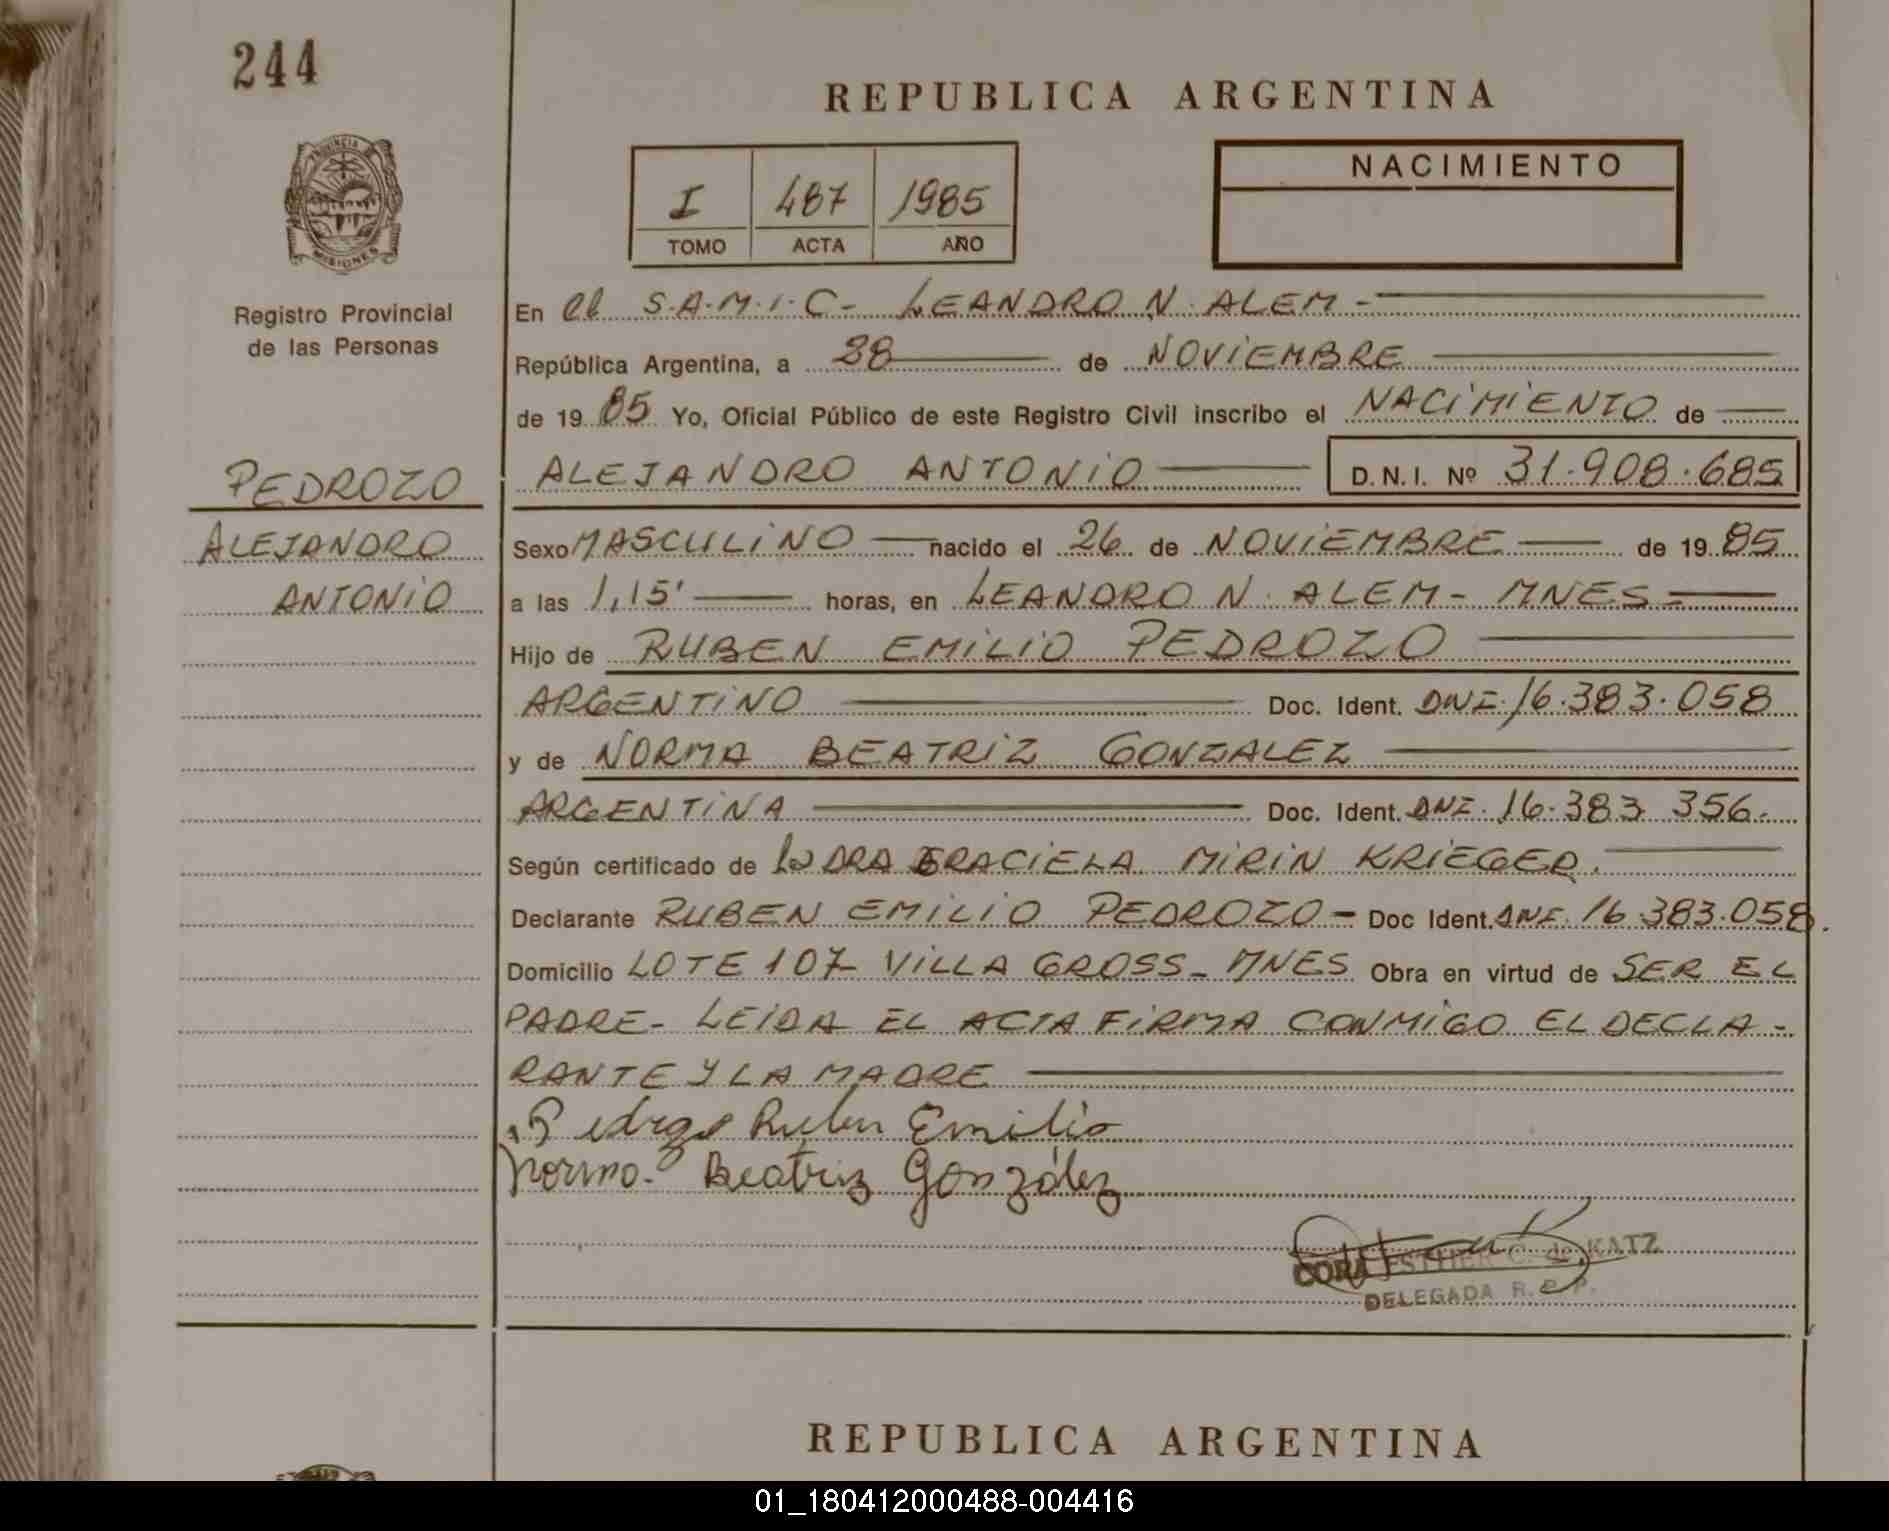 244
REPUBLICA ARGENTINA
PROVINCIA DE
MISIONES
I 487 1985
TOMO ACTA AÑO
NACIMIENTO
Registro Provincial
de las Personas
En el S.A.M.I.C- LEANDRO N. ALEM -
República Argentina, a 28 de NOVIEMBRE
de 19 85 Yo, Oficial Público de este Registro Civil inscribo el NACIMIENTO de
PEDROZO
ALEJANDRO ANTONIO D.N.I. Nº 31.908.685
ALEJANDRO
ANTONIO
Sexo MASCULINO nacido el 26 de NOVIEMBRE de 19 85
a las 1,15' horas, en LEANDRO N. ALEM - MNES -
Hijo de RUBEN EMILIO PEDROZO
ARGENTINO Doc. Ident. DNI. 16.383.058
y de NORMA BEATRIZ GONZALEZ
ARGENTINA Doc. Ident. DNI. 16.383 356.
Según certificado de la DRA GRACIELA MIRIN KRIEGER.
Declarante RUBEN EMILIO PEDROZO - Doc Ident. DNI. 16.383.058.
Domicilio LOTE 107 VILLA GROSS - MNES Obra en virtud de SER EL
PADRE - LEIDA EL ACTA FIRMA CONMIGO EL DECLA-
RANTE Y LA MADRE
Pedrozo Ruben Emilio
Norma Beatriz González
CORA ESTHER C. de KATZ
DELEGADA R. e P.
REPUBLICA ARGENTINA
01_180412000488-004416